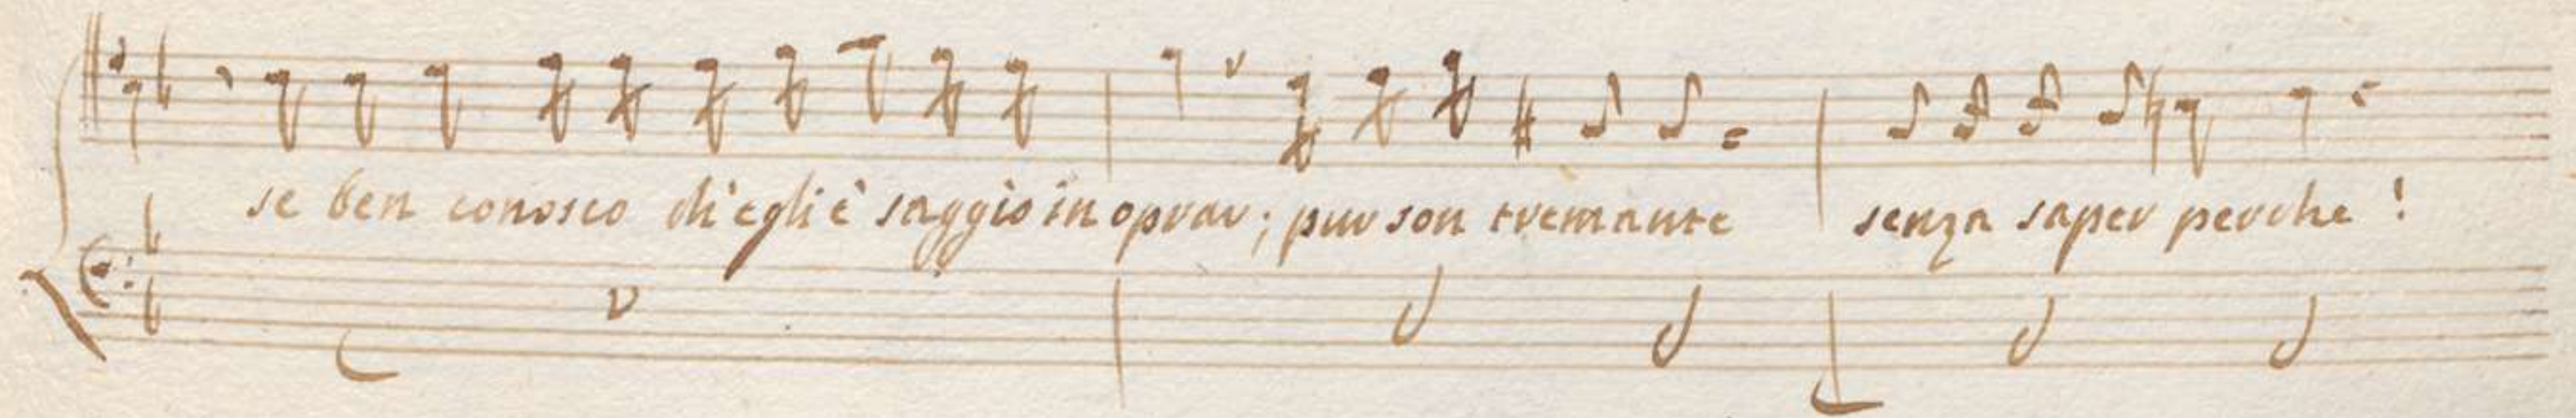 se ben conosco ch'egli è saggio in oprar; pur son tremante senza saper perche!